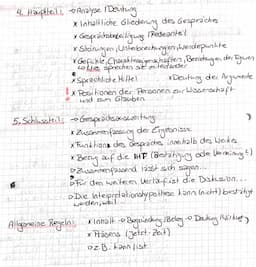 4. Hauptteil: → Analyse / Deutung
x Inhaltliche Gliederung des Gesprächs
x Gesprächsbeteiligung / Redeanteil
x Störungen, Unterbrechungen, Wendepunkte
x Gefühle, Charaktereigenschaften, Beziehungen der Figuren
→ Wie sprechen sie miteinander
x Sprachliche Mittel x Deutung der Argumente
! x Positionen der Personen zur Wissenschaft
und zum Glauben
5. Schlussteil: → Gesprächsauswertung
x Zusammenfassung der Ergebnisse
x Funktion des Gesprächs innerhalb des Werkes
x Bezug auf die IHF (Bestätigung oder Verneinung)
→ Zusammenfassend lässt sich sagen...
→ Für den weiteren Verlauf ist die Diskussion...
→ Die Interpretationshypothese kann (nicht) bestätigt
werden, weil...
Allgemeine Regeln: x Inhalt → Begründung / Beleg → Deutung / Wirkung
x Präsens (Jetzt-Zeit)
→ z.B. kann / ist